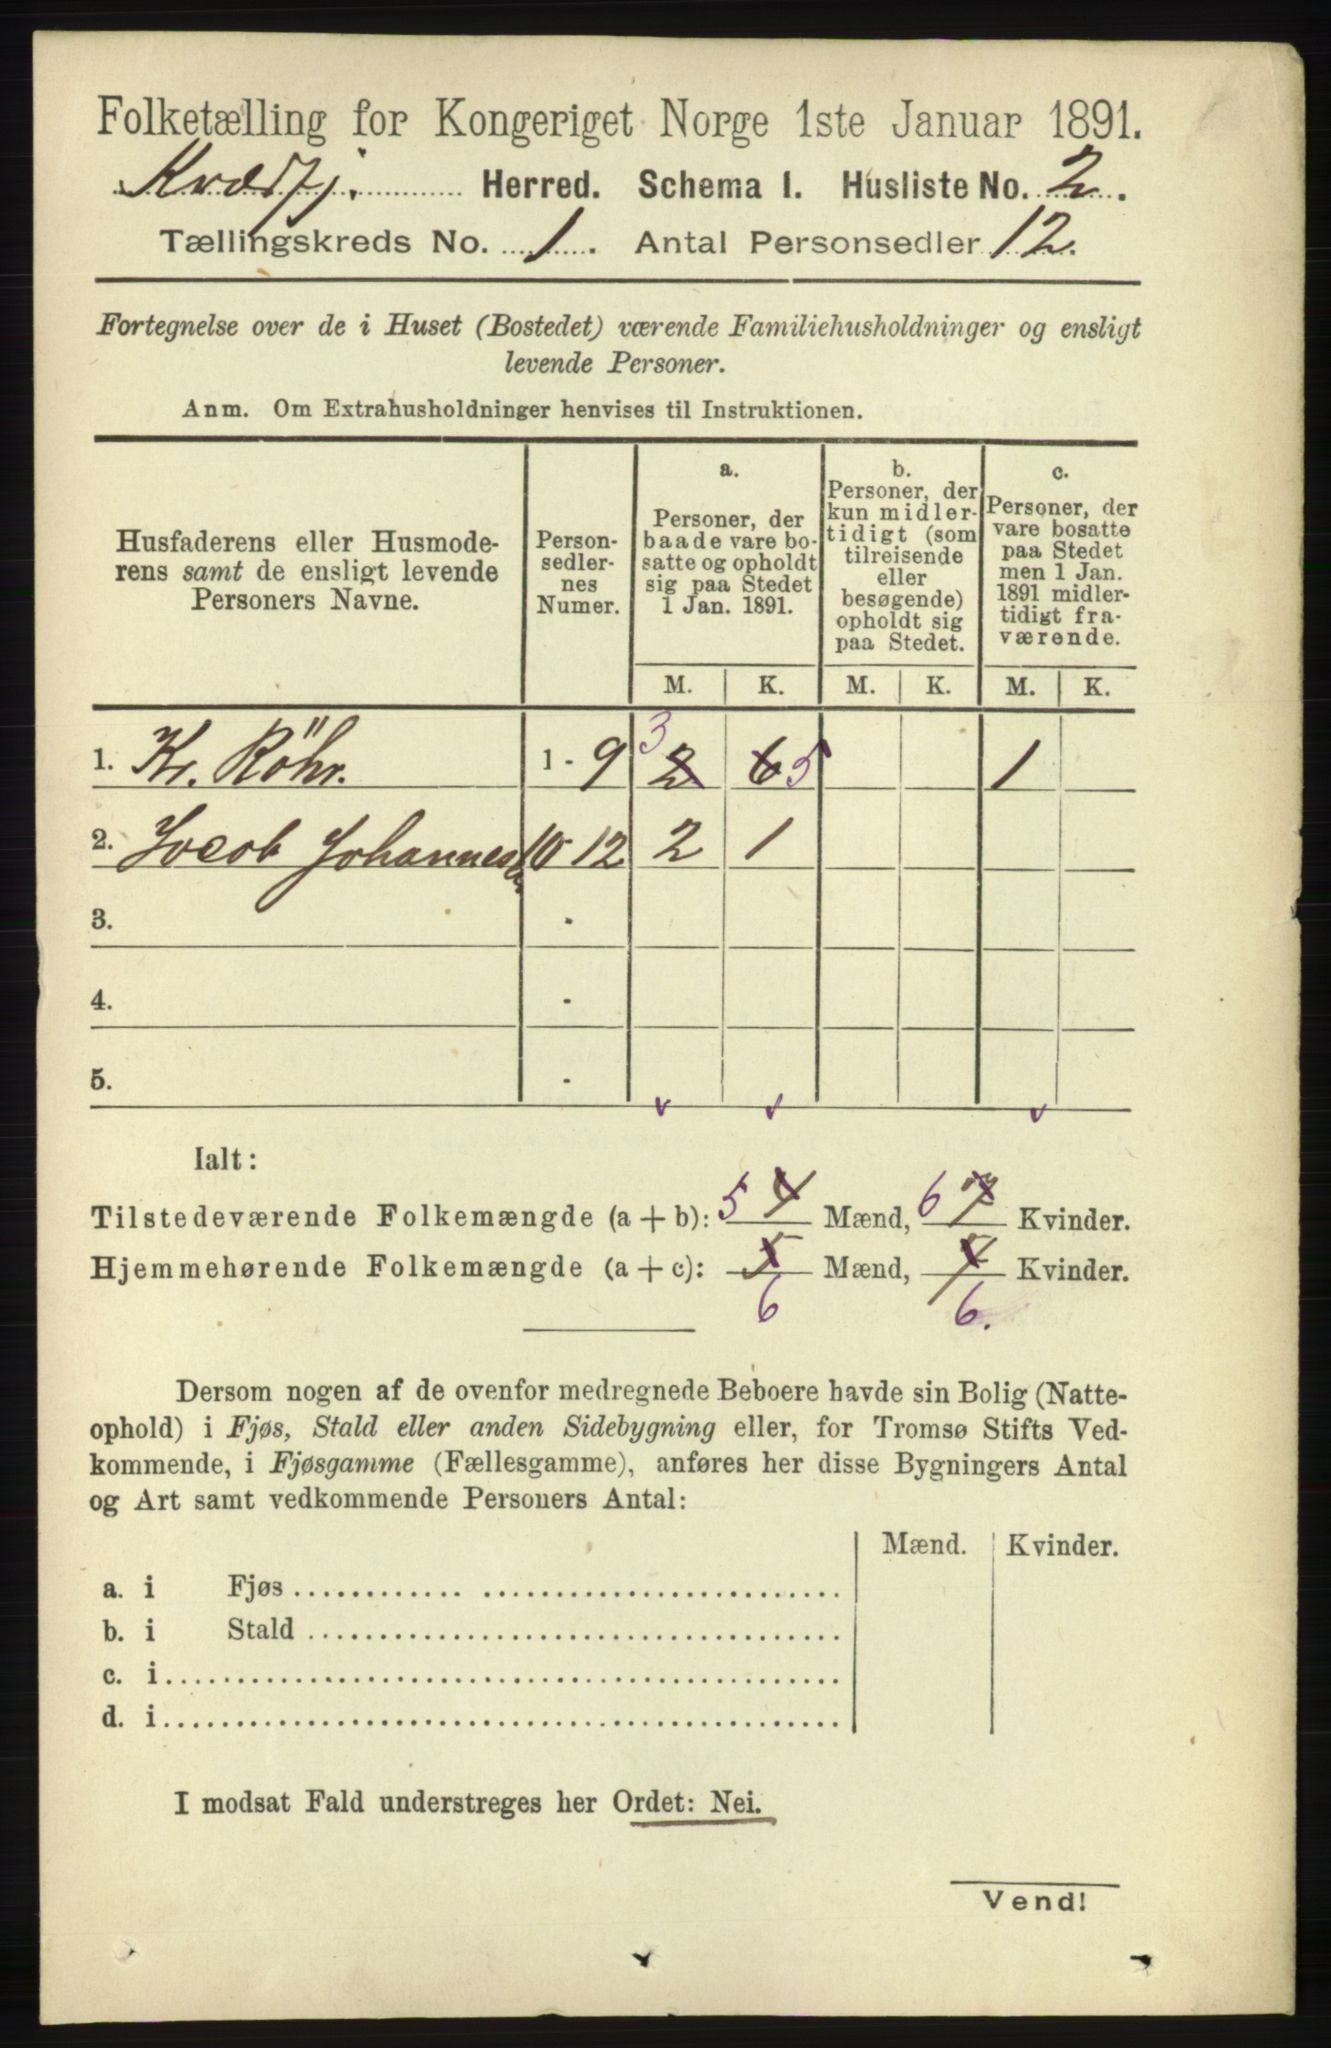 Folketælling for Kongeriget Norge 1ste Januar 1891.
Kvædfj. Herred. Schema I. Husliste No. 2.
Tællingskreds No. 1. Antal Personsedler 12.
Fortegnelse over de i Huset (Bostedet) værende Familiehusholdninger og ensligt
levende Personer.
Anm. Om Extrahusholdninger henvises til Instruktionen.
Husfaderens eller Husmode-
rens samt de ensligt levende
Personers Navne.
Person-
sedler-
nes
Numer.
a.
Personer, der
baade vare bo-
satte og opholdt
sig paa Stedet
1 Jan. 1891.
b.
Personer, der
kun midler-
tidigt (som
tilreisende
eller
besøgende)
opholdt sig
paa Stedet.
c.
Personer, der
vare bosatte
paa Stedet
men 1 Jan.
1891 midler-
tidigt fra-
værende.
M. K. M. K. M. K.
1. Kr. Röhr. 1 - 9 3 2 6 5 1
2. Jocob Johannes 10 12 2 1
3. -
4. -
5. -
Ialt:
Tilstedeværende Folkemængde (a + b): 5 4 Mænd, 6 7 Kvinder.
Hjemmehørende Folkemængde (a + c): 5 Mænd, 7 Kvinder.
6 6.
Dersom nogen af de ovenfor medregnede Beboere havde sin Bolig (Natte-
ophold) i Fjøs, Stald eller anden Sidebygning eller, for Tromsø Stifts Ved-
kommende, i Fjøsgamme (Fællesgamme), anføres her disse Bygningers Antal
og Art samt vedkommende Personers Antal:
Mænd. Kvinder.
a. i Fjøs
b. i Stald
c. i
d. i
I modsat Fald understreges her Ordet: Nei.
Vend!